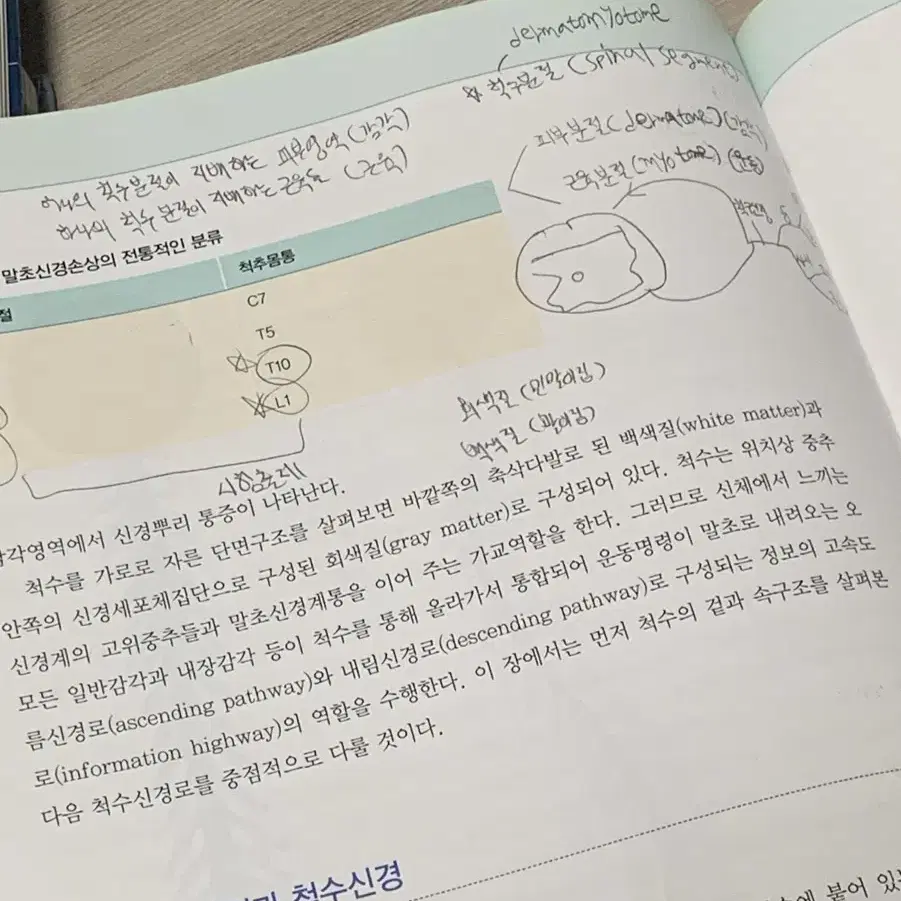 dermatomyotome
척수분절 (spinal segment)
피부분절 (dermatome) (감각)
근육분절 (myotome) (운동)
하나의 척수분절이 지배하는 피부영역 (감각)
하나의 척수분절이 지배하는 근육들 (근육)
말초신경손상의 전통적인 분류
절 척추몸통
C7
T5
T10
L1
시험출제
회색질 (민말이집)
백색질 (말이집)
감각영역에서 신경뿌리 통증이 나타난다.
척수를 가로로 자른 단면구조를 살펴보면 바깥쪽의 축삭다발로 된 백색질(white matter)과
안쪽의 신경세포체집단으로 구성된 회색질(gray matter)로 구성되어 있다. 척수는 위치상 중추
신경계의 고위중추들과 말초신경계통을 이어 주는 가교역할을 한다. 그러므로 신체에서 느끼는
모든 일반감각과 내장감각 등이 척수를 통해 올라가서 통합되어 운동명령이 말초로 내려오는 오
름신경로(ascending pathway)와 내림신경로(descending pathway)로 구성되는 정보의 고속도
로(information highway)의 역할을 수행한다. 이 장에서는 먼저 척수의 겉과 속구조를 살펴본
다음 척수신경로를 중점적으로 다룰 것이다.
척수신경
에 붙어 있는